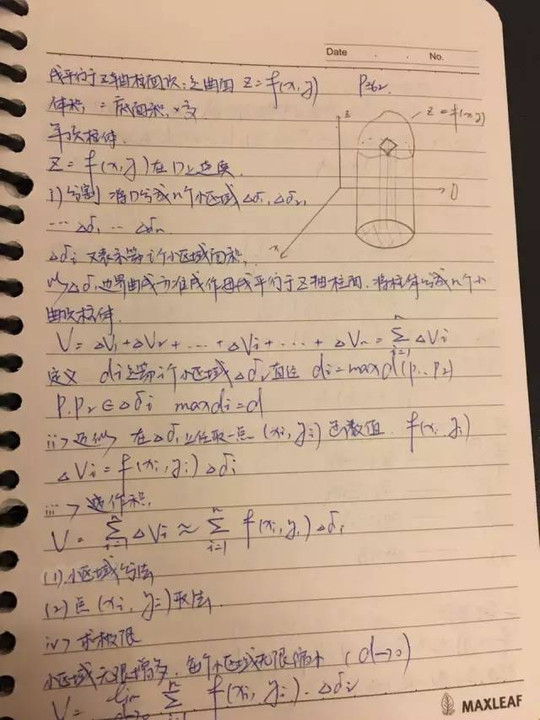 Date No.
线平行于Z轴柱面顶:是曲面 z = f(x,y) P262
体积 = 底面积 × 高 z = f(x,y)
平顶柱体 z
z = f(x,y)在D上连续
i) 分割 将D分成n个小区域 Δδ1, Δδ2, D
… Δδi … Δδn
Δδi 又表示第i个小区域面积 x
以Δδi边界曲线为准线作母线平行于Z轴柱面,将柱体分成n个小
曲顶柱体
V = ΔV1 + ΔV2 + … + ΔVi + … + ΔVn = Σ ΔVi n i=1
定义 di是第i个小区域Δδi直径 di = max d(P1, P2)
P1 P2 ∈ Δδi max di = d
ii> 近似 在Δδi上任取一点 (xi, yi) 函数值 f(xi, yi)
ΔVi = f(xi, yi) Δδi
iii> 作和
V = Σ ΔVi ≈ Σ f(xi, yi) Δδi n i=1 n i=1
(1) 小区域分法
(2) 点 (xi, yi) 取法
iv> 求极限
小区域无限增多,每个小区域无限缩小 (d→0)
V = lim Σ f(xi, yi) · Δδi n d→0
MAXLEAF